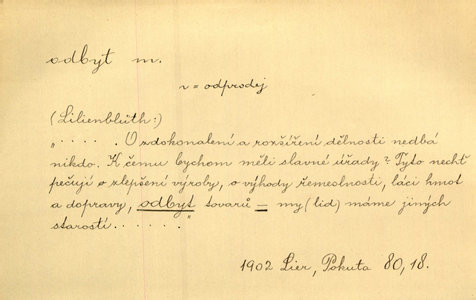 odbyt m.
v = odprodej
(Lilienblüth:)
„ . . . . . O zdokonalení a rozšíření dělnosti nedbá
nikdo. K čemu bychom měli slavné úřady? Tyto nechť
pečují o zlepšení výroby, o výhody řemeslnosti, láci hmot
a dopravy, odbyt tovarů = my (lid) máme jiných
starostí. . . . . . "
1902 Lier, Pokuta 80, 18.